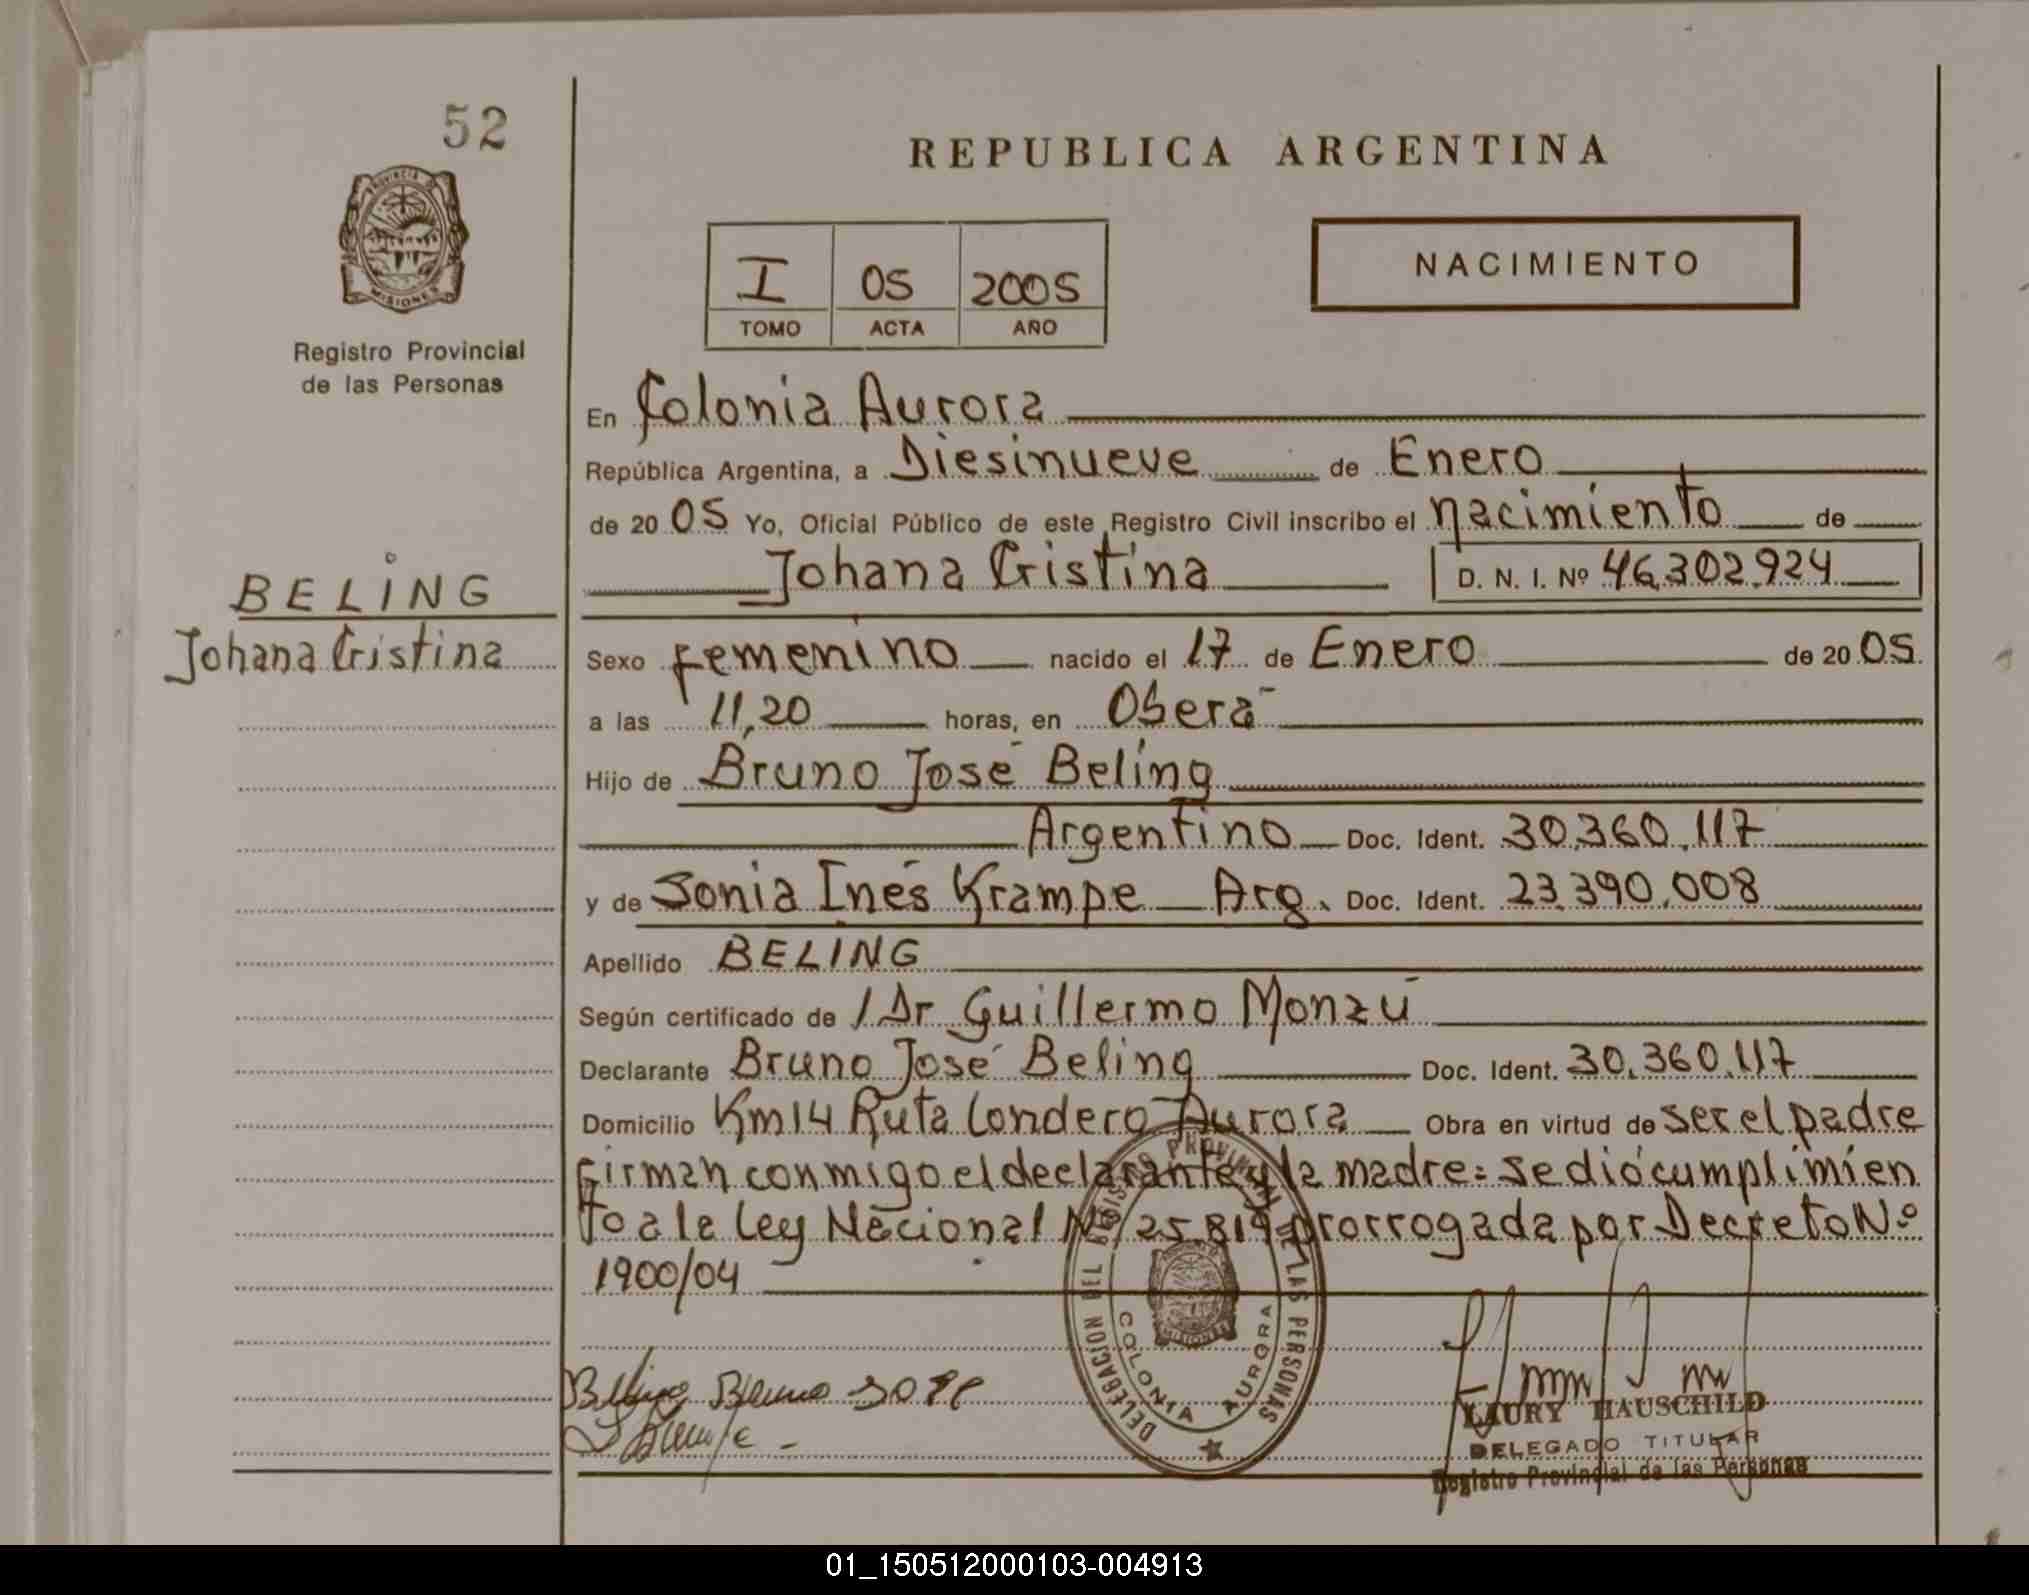 52
REPUBLICA ARGENTINA
PROVINCIA DE
MISIONES
Registro Provincial
de las Personas
I 05 2005
TOMO ACTA AÑO
NACIMIENTO
En Colonia Aurora
República Argentina, a Diesinueve de Enero
de 2005 Yo, Oficial Público de este Registro Civil inscribo el nacimiento de
Johana Cristina D. N. I. Nº 46.302.924
BELING
Johana Cristina
Sexo Femenino nacido el 17 de Enero de 2005
a las 11,20 horas, en Oberá
Hijo de Bruno José Beling
Argentino Doc. Ident. 30.360.117
y de Sonia Inés Krampe Arg. Doc. Ident. 23.390.008
Apellido BELING
Según certificado de /Dr Guillermo Monzú
Declarante Bruno José Beling Doc. Ident. 30.360.117
Domicilio Km14 Ruta Londero Aurora Obra en virtud de ser el padre
firman conmigo el declarante y la madre: se dió cumplimien
to a la Ley Nacional Nº 25.819 prorrogada por Decreto Nº
1900/04
DELEGACION DEL REGISTRO PROVINCIAL DE LAS PERSONAS
MISIONES
COLONIA AURORA
Beling Bruno José
LAURY HAUSCHILD
DELEGADO TITULAR
Registro Provincial de las Personas
01_150512000103-004913